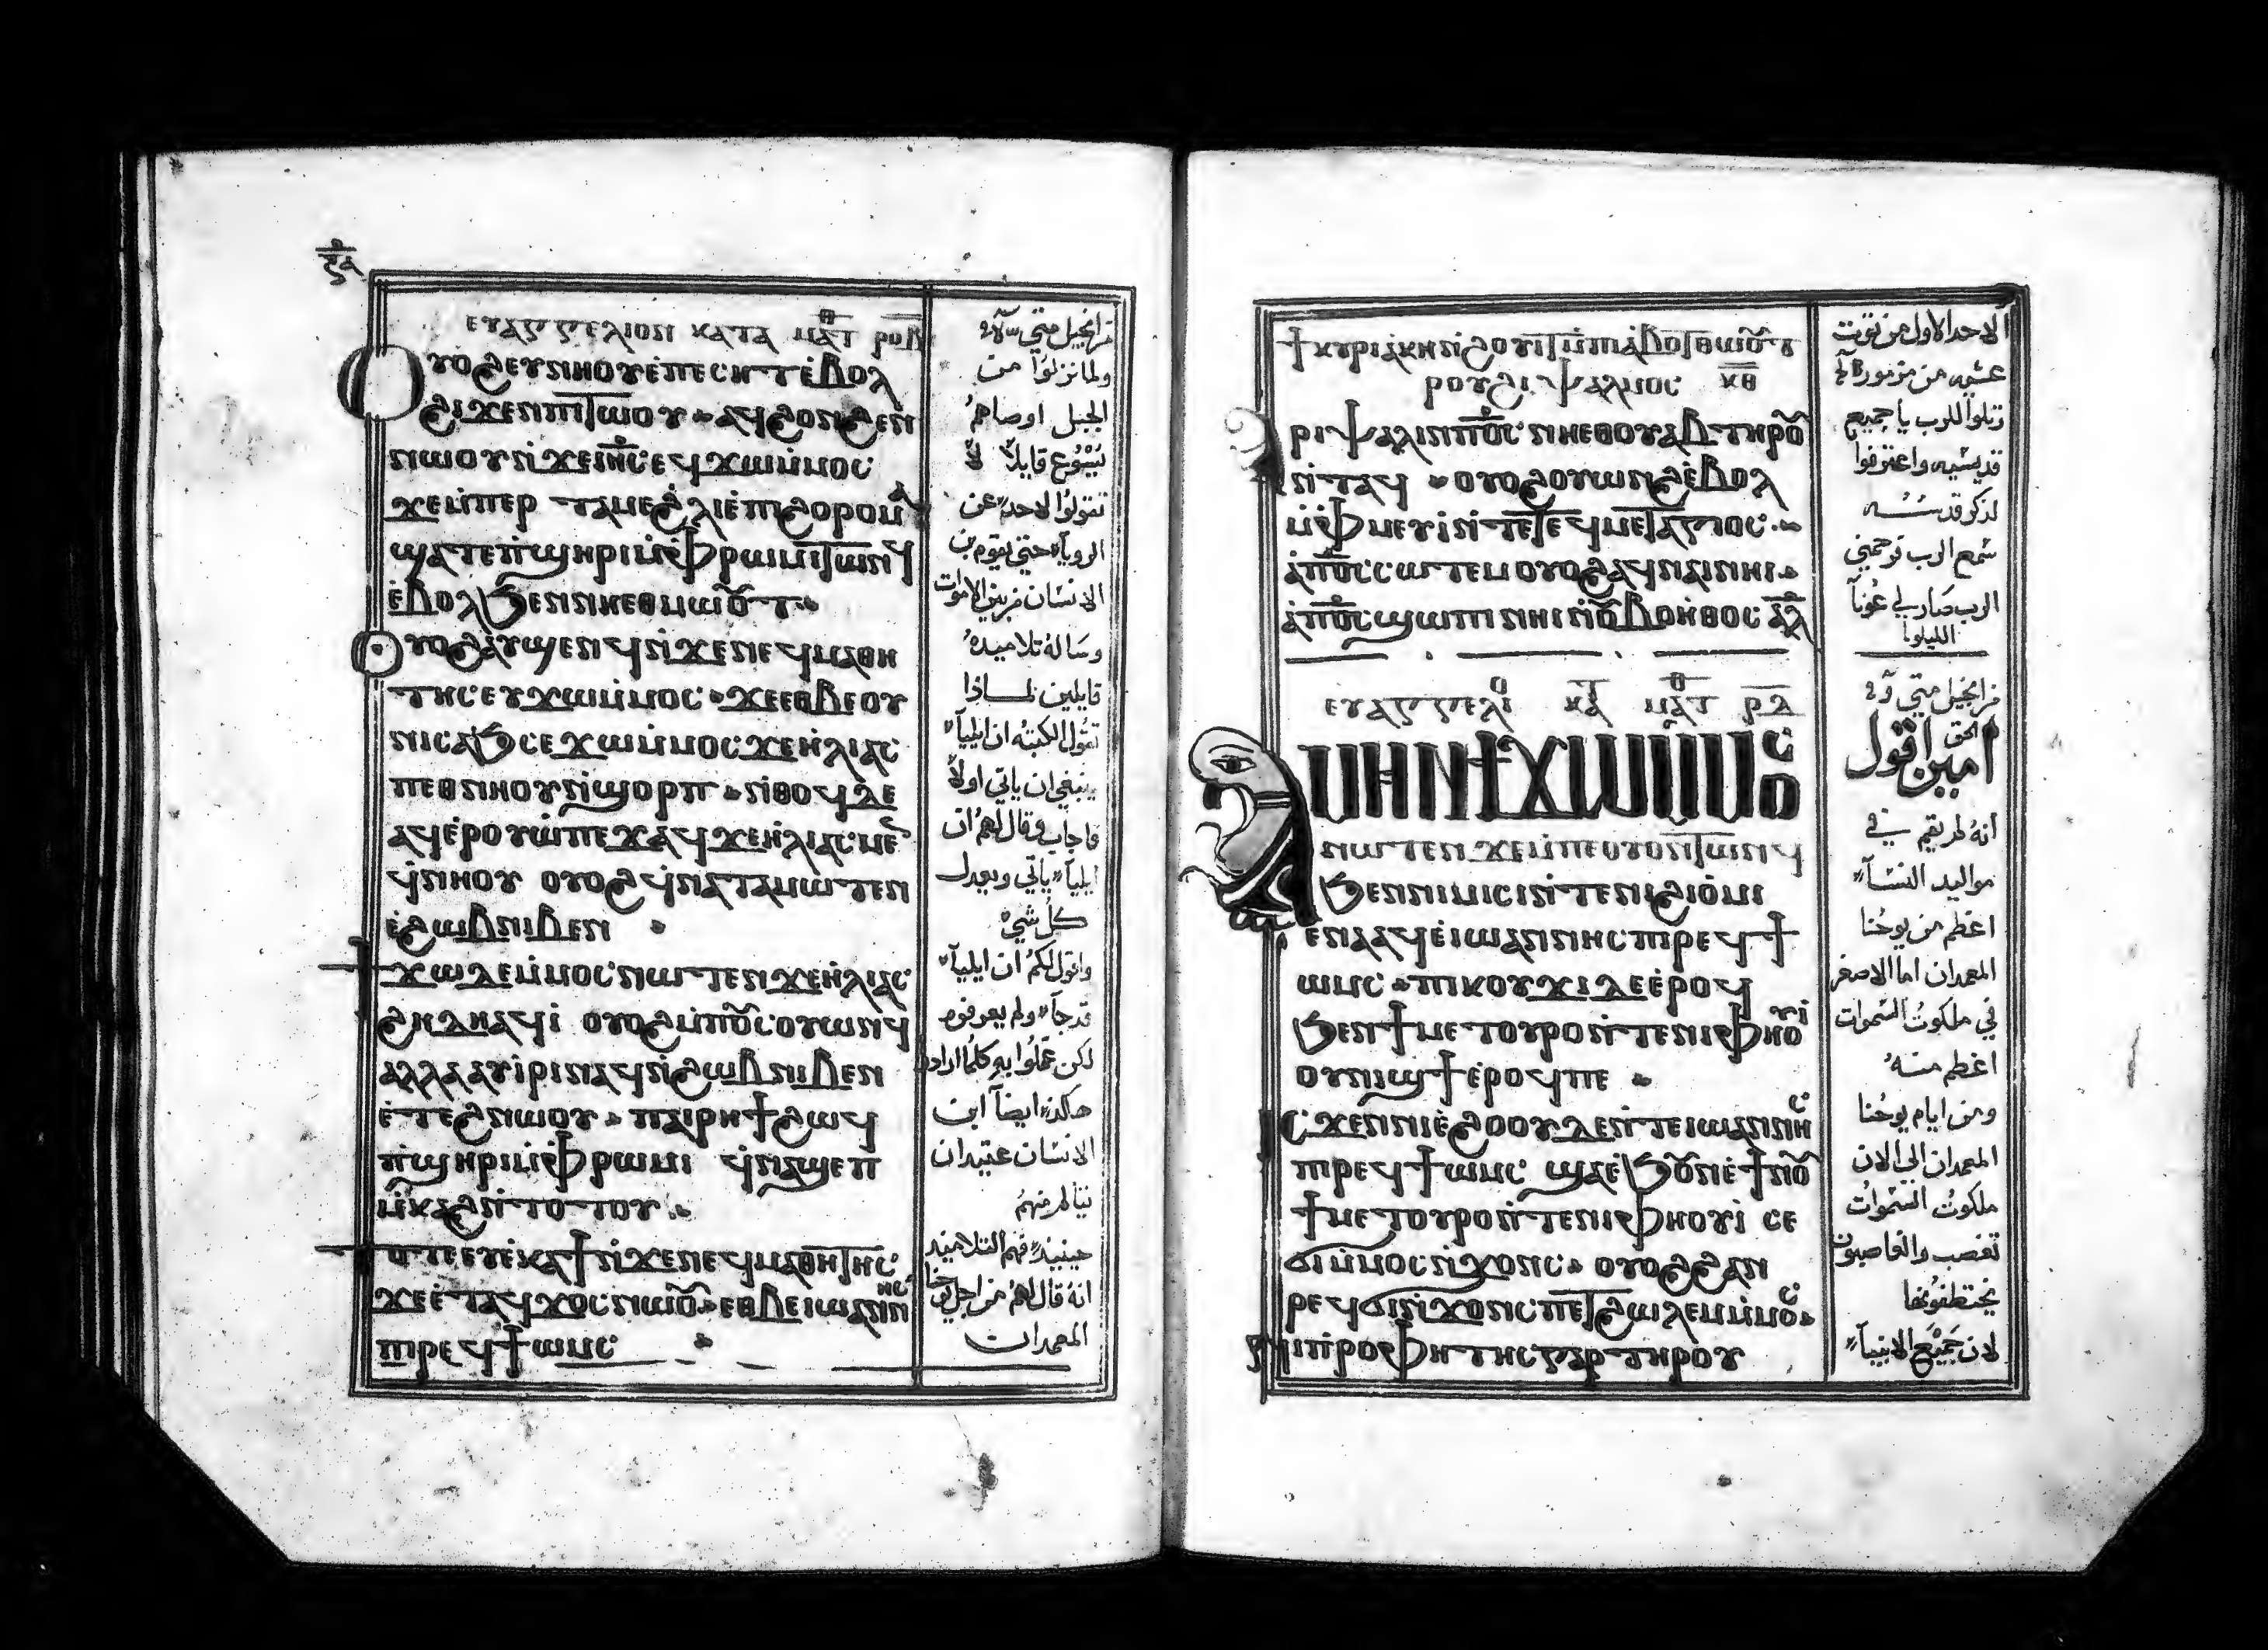 ⲉⲩⲁⲅⲅⲉⲗⲓⲟⲛ ⲕⲁⲧⲁ ⲙⲁⲧ
ⲟⲩⲟϩⲉⲩⲛⲏⲟⲩⲉ̀ⲡⲉⲥⲏⲧⲉ̀ⲃⲟⲗ
ϩⲓϫⲉⲛⲡⲓⲧⲱⲟⲩ ⲁϥϩⲟⲛϩⲉⲛ
ⲛⲱⲟⲩⲛ̀ϫⲉⲓⲏ̅ⲥ̅ⲉϥϫⲱⲙ̀ⲙⲟⲥ
ϫⲉⲙ̀ⲡⲉⲣ ⲧⲁⲙⲉϩ̀ⲗⲓⲉ̀ⲡⲓϩⲟⲣⲟⲙⲁ
ϣⲁⲧⲉⲡ̀ϣⲏⲣⲓⲙ̀ⲫ̀ⲣⲱⲙⲓⲧⲱⲛϥ
ⲉ̀ⲃⲟⲗϧⲉⲛⲛⲏⲉⲑⲙⲱⲟⲩⲧ
ⲟⲩⲟϩⲁⲩϣⲉⲛϥⲛ̀ϫⲉⲛⲉϥⲙⲁⲑⲏ
ⲧⲏⲥⲉⲩϫⲱⲙ̀ⲙⲟⲥ ϫⲉⲉⲑⲃⲉⲟⲩ
ⲛⲓⲥⲁϧⲥⲉϫⲱⲙ̀ⲙⲟⲥϫⲉⲏ̀ⲗⲓⲁⲥ
ⲡⲉⲑⲛⲏⲟⲩⲛ̀ϣⲟⲣⲡ ⲛ̀ⲑⲟϥⲇⲉ
ⲁϥⲉ̀ⲣⲟⲩⲱ̀ⲡⲉϫⲁϥϫⲉⲏ̀ⲗⲓⲁⲥⲙⲉ̀
ϥ̀ⲛⲏⲟⲩ ⲟⲩⲟϩϥ̀ⲛⲁⲧⲁⲙⲱⲧⲉⲛ
ⲉ̀ϩⲱⲃⲛⲓⲃⲉⲛ
ϯϫⲱⲇⲉⲙ̀ⲙⲟⲥⲛⲱⲧⲉⲛϫⲉⲏ̀ⲗⲓⲁⲥ
ϩⲏⲇⲏⲁϥⲓ̀ ⲟⲩⲟϩⲙ̀ⲡⲟⲩⲥⲟⲩⲱⲛϥ̀
ⲁⲗⲗⲁⲁⲩⲓ̀ⲣⲓⲛⲁϥⲛ̀ϩⲱⲃⲛⲓⲃⲉⲛ
ⲉ̀ⲧⲉϩⲛⲱⲟⲩ ⲡⲁⲓⲣⲏϯϩⲱϥ
ⲡ̀ϣⲏⲣⲓⲙ̀ⲫ̀ⲣⲱⲙⲓ ϥ̀ⲛⲁϣⲉⲡ
ⲙ̀ⲕⲁϩⲛ̀ⲧⲟⲧⲟⲩ
ⲧⲟⲧⲉⲉⲩⲉ̀ⲕⲁϯⲛ̀ϫⲉⲛⲉϥⲙⲁⲑⲏⲧⲏⲥ
ϫⲉⲉ̀ⲧⲁϥϫⲟⲥⲛⲱⲟⲩ ⲉⲑⲃⲉⲓⲱⲁⲛⲛⲏⲥ
ⲡⲓⲣⲉϥϯⲱⲙⲥ
من انجيل متي
ولما نزلوا من
الجبل اوصاهم
يسوع قايلاً لا
تقولوا لاحد عن
الرويا حتي يقوم بن
الانسان من بين الاموات
وساله تلاميده
قايلين لماذا
تقول الكتبه ان ايليا
ينبغي ان ياتي اولاً
فاجاب وقال لهم ان
ايليا ياتي ويعدل
كل شي
واقول لكم ان ايليا
قد جا ولم يعرفوه
لكن عملوا به كلما ارادو
هكذا ايضاً ابن
الانسان عتيد ان
يتالم منهم
حينيد فهم التلاميد
انه قال لهم من اجل يوحنا
المعمدان
ϯⲕⲩⲣⲓⲁⲕⲏⲛ̀ϩⲟⲩⲓⲧⲙ̀ⲡⲓⲁ̀ⲃⲟⲧⲑⲱⲟⲩⲧ
ⲣⲟⲩϩⲓ ⲯⲁⲗⲙⲟⲥ ⲕ̅ⲑ̅
ⲁⲣⲓⲯⲁⲗⲓⲛⲡⲟ̅ⲥ̅ⲛⲏⲉⲑⲟⲩⲁⲃⲧⲏⲣⲟⲩ
ⲛ̀ⲧⲁϥ ⲟⲩⲟϩⲟⲩⲱⲛϩⲉ̀ⲃⲟⲗ
ⲙ̀ⲫ̀ⲙⲉⲩⲓ̀ⲛ̀ⲧⲉⲧⲉϥⲙⲉⲧⲁⲅⲓⲟⲥ
ⲁ̀ⲡⲟ̅ⲥ̅ⲥⲱⲧⲉⲙⲟⲩⲟϩⲁϥⲛⲁⲓⲛⲏⲓ
ⲁ̀ⲡⲟ̅ⲥ̅ϣⲱⲡⲓⲛⲏⲓⲛ̀ⲟⲩⲃⲟⲏ̀ⲑⲟⲥ ⲁ̅ⲗ̅
ⲉⲩⲁⲅⲅⲉⲗⲓⲟ ⲕⲁⲧ ⲙⲁⲧ ⲣ̅ⲇ̅
ⲁⲙⲏⲛϯϫⲱⲙ̀ⲙⲟⲥ
ⲛⲱⲧⲉⲛ ϫⲉⲙ̀ⲡⲉⲟⲩⲟⲛⲧⲱⲛϥ
ϧⲉⲛⲛⲓⲙⲓⲥⲓⲛ̀ⲧⲉⲛⲓϩⲓⲟ̀ⲙⲓ
ⲉⲛⲁⲁϥⲉ̀ⲓⲱⲁⲛⲛⲏⲥⲡⲓⲣⲉϥϯ
ⲱⲙⲥ ⲡⲓⲕⲟⲩϫⲓⲇⲉⲉ̀ⲣⲟϥ
ϧⲉⲛϯⲙⲉⲧⲟⲩⲣⲟⲛ̀ⲧⲉⲛⲓⲫⲏⲟⲩⲓ
ⲟⲩⲛⲓϣϯⲉ̀ⲣⲟϥⲡⲉ
ⲓⲥϫⲉⲛⲛⲓⲉ̀ϩⲟⲟⲩⲇⲉⲛ̀ⲧⲉⲓⲱⲁⲛⲛⲏⲥ
ⲡⲓⲣⲉϥϯⲱⲙⲥ ϣⲁⲉ̀ϧⲟⲩⲛⲉ̀ϯⲛⲟⲩ
ϯⲙⲉⲧⲟⲩⲣⲟⲛ̀ⲧⲉⲛⲓⲫⲏⲟⲩⲓ̀ ⲥⲉ
ϭⲓⲙ̀ⲙⲟⲥⲛ̀ϫⲟⲛⲥ ⲟⲩⲟϩϩⲁⲛ
ⲣⲉϥϭⲓⲛ̀ϫⲟⲛⲥⲡⲉⲧϩⲱⲗⲉⲙⲙ̀ⲙⲟⲥ
ⲛⲓⲡ̀ⲣⲟⲫⲏⲧⲏⲥⲅⲁⲣ ⲧⲏⲣⲟⲩ
الاحد الاول من توت
عشيه من مزمور
رتلوا للرب يا جميع
قديسيه واعترفوا
لذكر قدسه
سمع الرب فرحمني
الرب صار لي عوناً
الليلويا
من انجيل متي
الحق
امين اقول
انه لم يقم في
مواليد النسا
اعظم من يوحنا
المعمدان اما الاصغر
في ملكوت السموات
اعظم منه
ومن ايام يوحنا
المعمدان الي الان
ملكوت السموات
تغصب والغاصبون
يختطفونها
لان جميع الانبيا